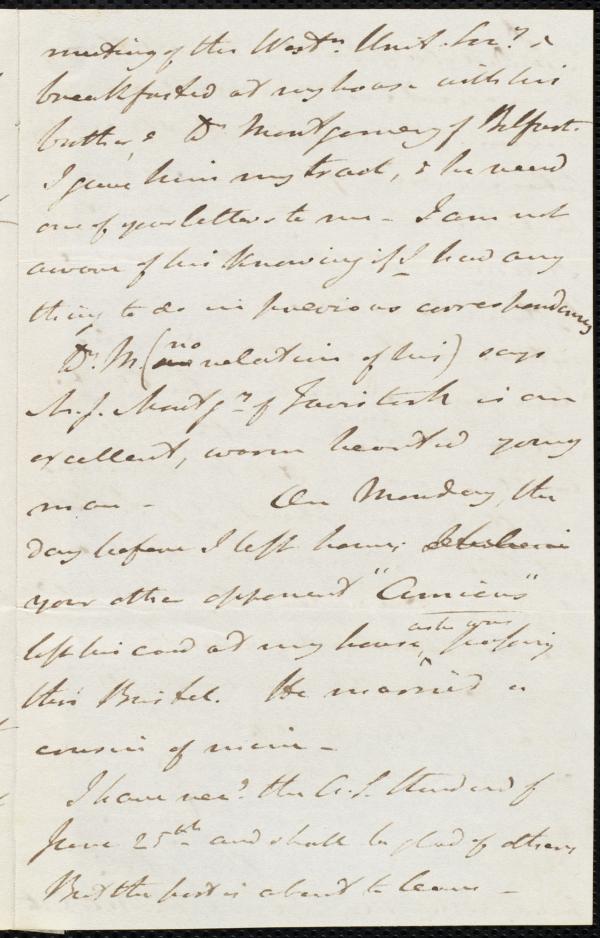 meeting of the Westn. Unit. Socy. &
breakfasted at my house with his
brother & Dr Montgomery of Belfast.
I gave him my tract, & he read
one of your letters to me - I am not
aware of his knowing if I had any
thing to do in previous correspondence
Dr. M (no relation of his) says
Mr. J. Montgy. of Tavistock is an
excellent, warm hearted young
man - On Monday, the
day before I left home,
your other opponent "Amicus"
left his card at my house, as he was passing
thro' Bristol. He married a
cousin of mine -
I have recd. the A. S. Standard of
June 25th and shall be glad of others
But the post is about to leave -